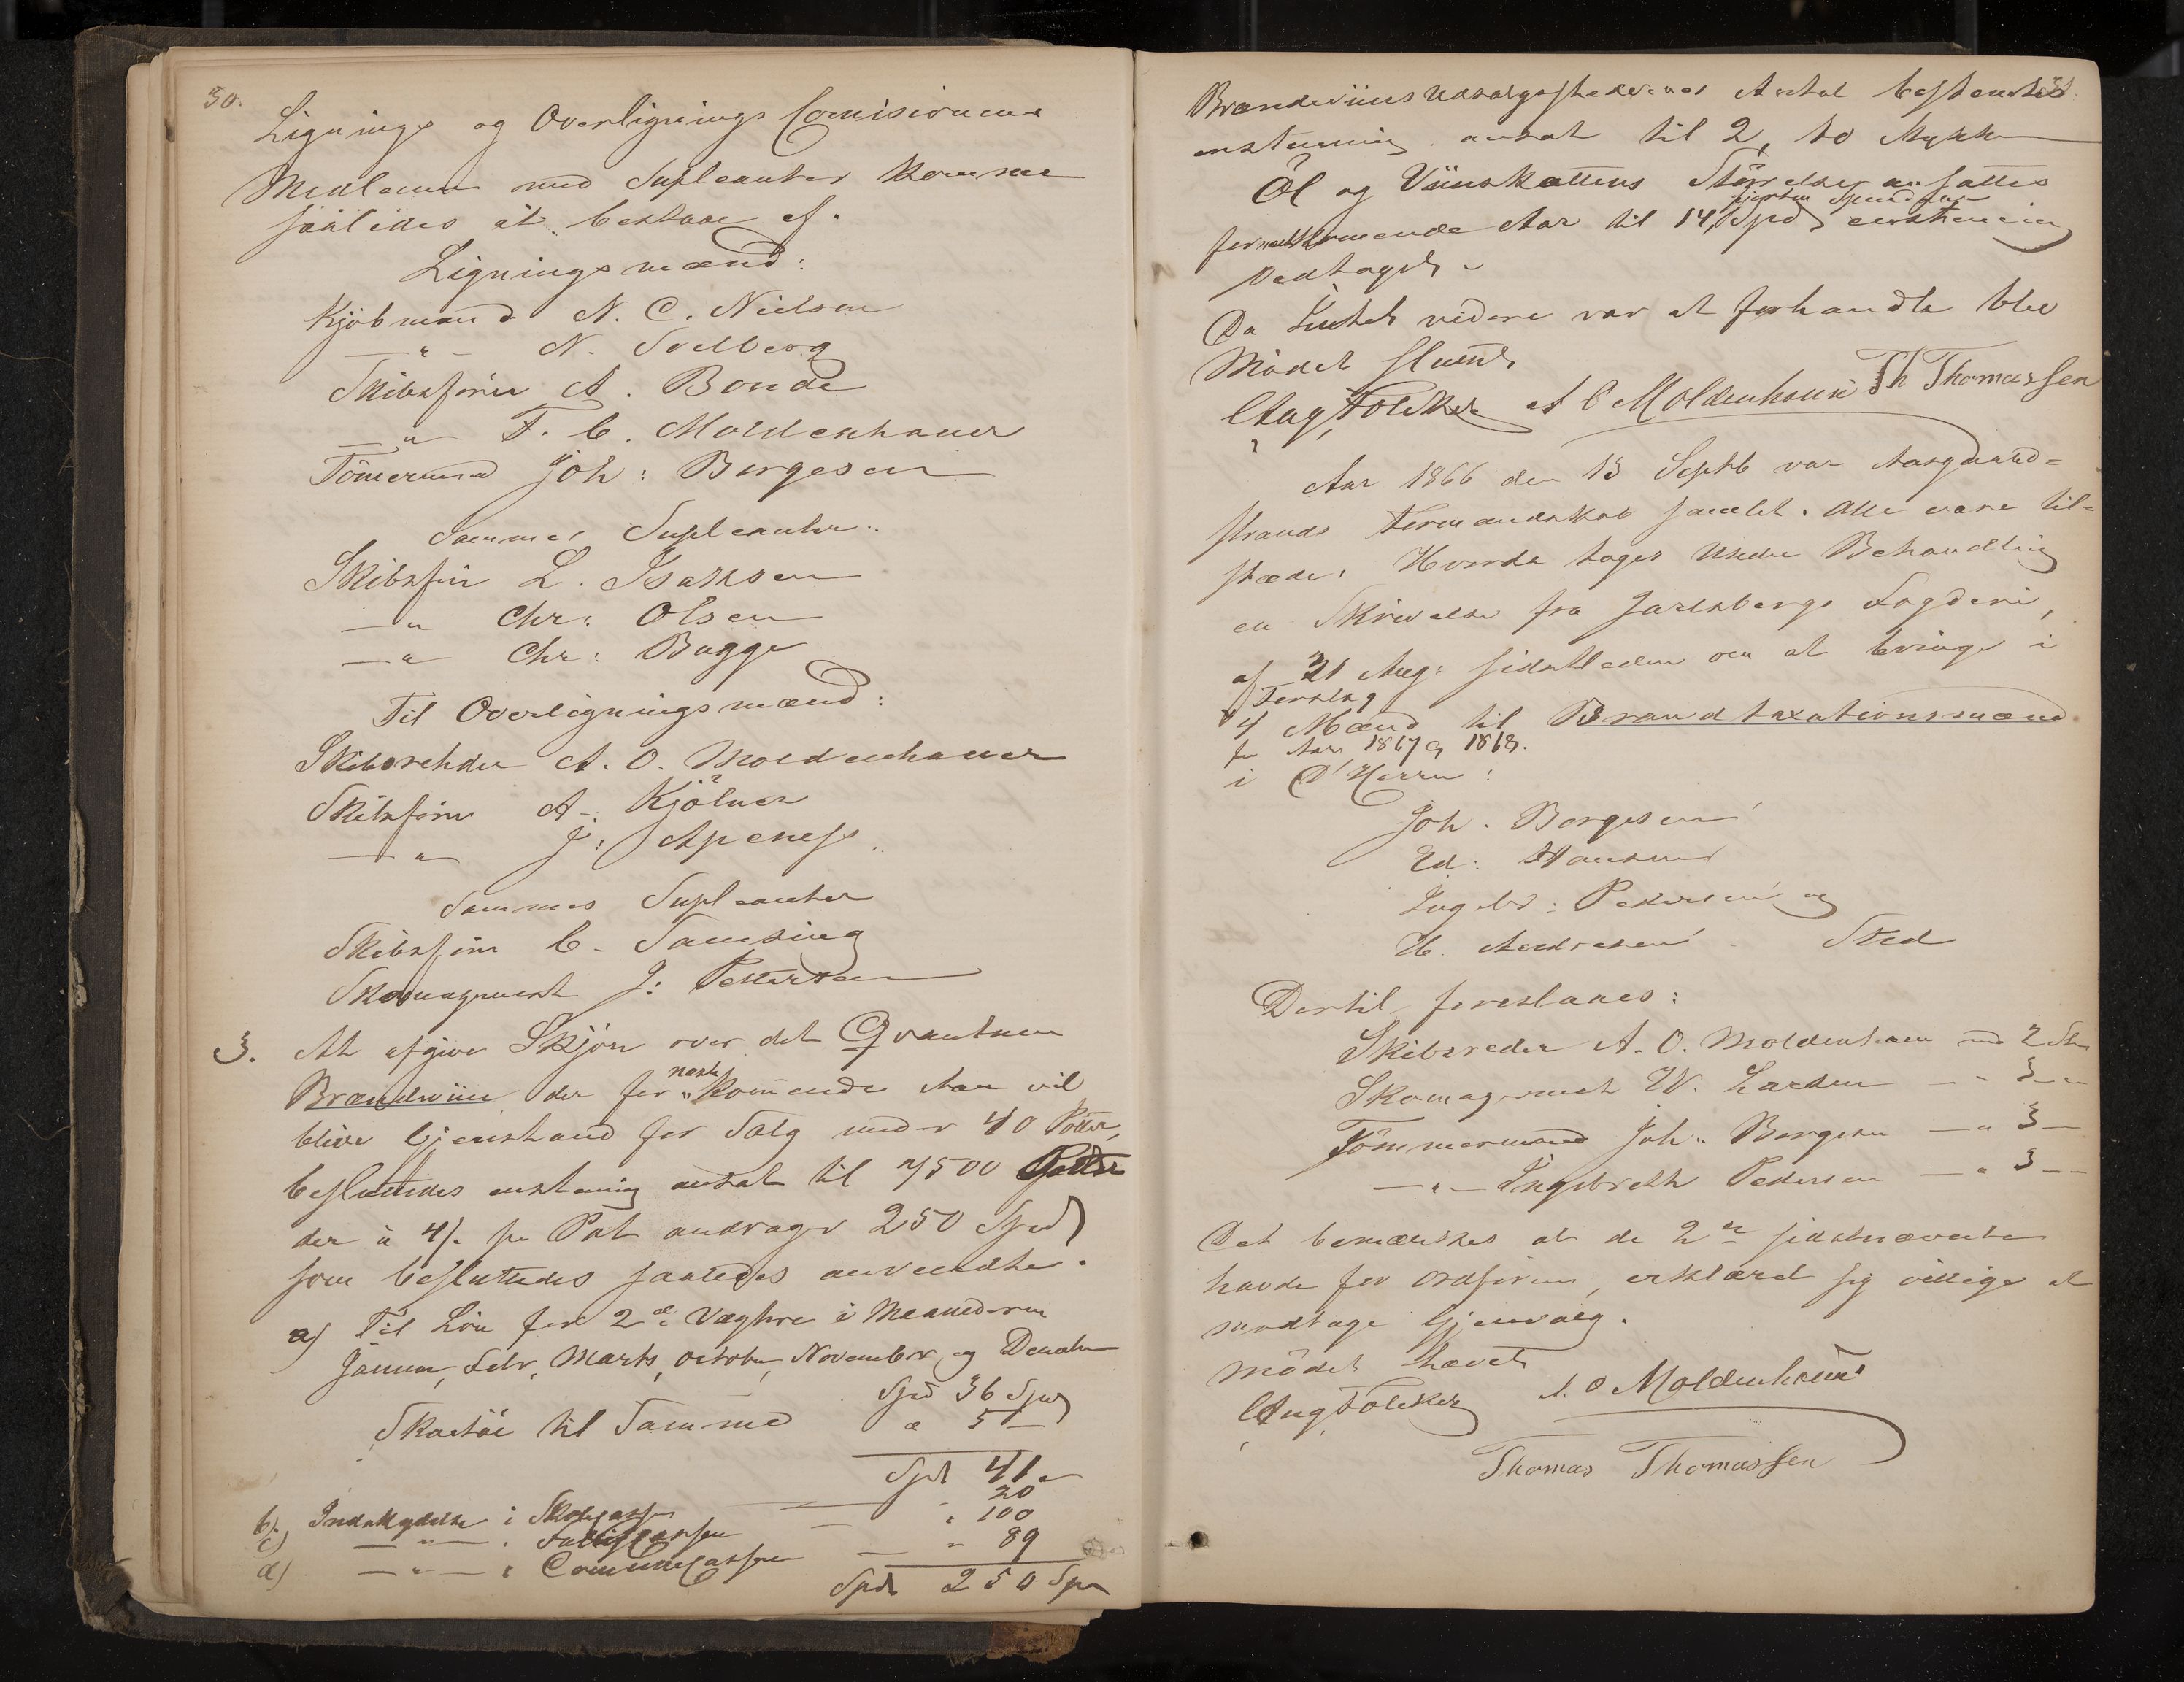 30.
Lignings og Overlignings Comisionens
Medlemer med Supleanter komme
saaledes at bestaae af.
Ligningsmænd:
Kjøbmand N. C. Nielsen
— " — N. Solberg
Skibsfører A. Bonde
— " — F. C. Moldenhauer
Tömermand Joh: Borgesen
Sammes Supleanter.
Skibsfør L. Isaksen
— " Chr: Olsen
— " Chr: Bugge
Til Overligningsmænd:
Skibsrehder A. O. Moldenhauer
Skibsfører A. Kjölner
— " J: Apenes
Sammes Supleanter
Skibsfører C. Samsing
Skomagermest J: Pettersen
3. At afgive Skjøn over det Qvantum
Brændeviin der for næste kommende Aar vil
blive Gjenstand for Salg under 40 Potter,
besluttedes enstemig antat til 7500 Potter
der à 4 /. pr Pot andrager 250 Spd
som besluttedes saaledes anvendte.
a) Til Løn for 2de Vægtere i Maanederne
Januar, Febr, Marts, October, November og December
Spd 36 Spd
Skoetöi til Samme " 5 —
Spd 41 "
b) Indskydelse i Skolecassen — " 20
c) — " — " Fattigcassen — " 100
d) — " — " Communecassen — " 89
Spd 250 Spd
Brændeviins Udsalgsstedernes Antal bestemtes
enstemmig antat til 2, to Stykker
Öl og Viinskattens Störrelse ansattes
fjorten Speciedaler
for næstkommende Aar til 14, Spd enstemmig
Vedtaget.
Da Intet videre var at forhandle blev
Mödet sluttet.
Aug, Foleker A O Moldenhauer Th Thomassen
Aar 1866 den 13 Septb var Aasgaard=
strands Formandskab samlet. Alle vare til=
stæde. Hvorda toges under Behandling
en Skrivelse fra Jarlsbergs Fogderi,
af 31 Aug: sidstleden om at bringe i
Forslag
4 Mænd til Brandtaxationsmænd
for Aar 1867 og 1868.
i D'Herrer:
Joh. Borgesen
Ed: Hansens
Ingebr: Pedersen og
H. Andresens Sted
Dertil foreslaaes:
Skibsreder A. O. Moldenhauer med 2 St
Skomagermest W. Larsen — " 3 — "
Tömmermand Joh: Borgesen — " 3 —
— " — Ingebreth Pedersen — " 3 — —
Det bemærkes at de 2de sidstnævnte
havde for Ordføreren, erklæret sig villige at
modtage Gjenvalg.
Mödet hævet
Aug, Foleker A. O Moldenhauer
Thomas Thomassen